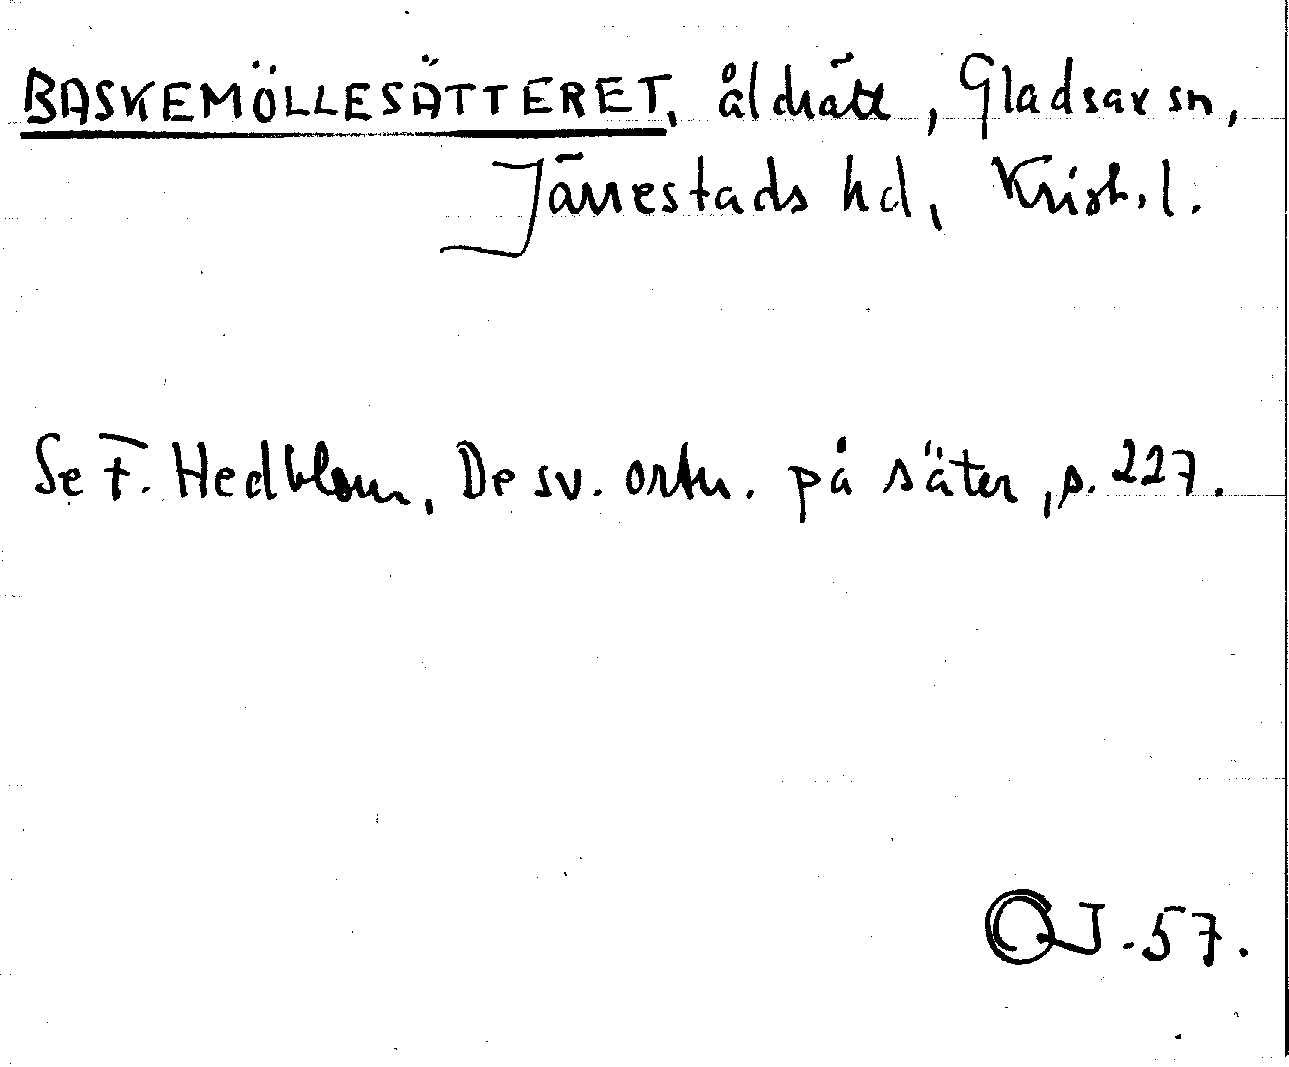 BASKEMÖLLESÄTTERET, åldrätt, Gladsax sn,
Järrestads hd, Krist. l.
Se F. Hedblom, De sv. ortn. på säter, s. 227.
QJ-57.